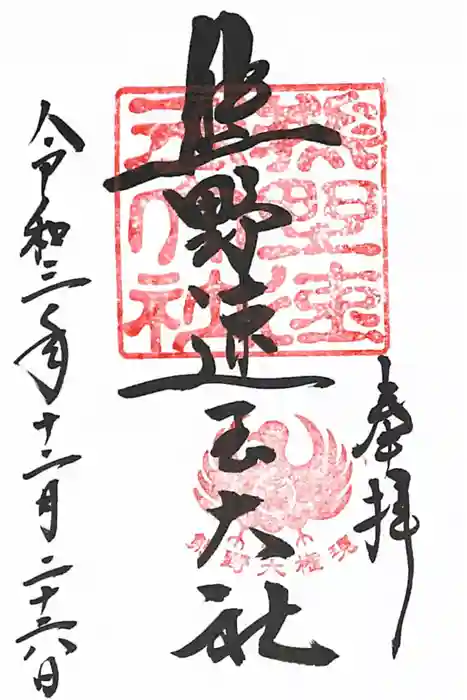 奉拝
熊野速玉大社
熊野大権現
令和三年十二月二十六日